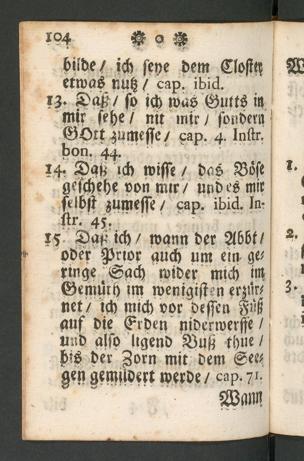 104 ❀ o ❀
bilde / ich seye dem Closter
etwas nutz / cap. ibid.
13. Daß / so ich was Gutts in
mir sehe / nit mir / sondern
GOtt zumesse / cap. 4. Instr.
bon. 44.
14. Daß ich wisse / das Böse
geschehe von mir / und es mir
selbst zumesse / cap. ibid. In-
str. 45.
15 Daß ich / wann der Abbt /
oder Prior auch um ein ge-
ringe Sach wider mich im
Gemüth im wenigisten erzür-
net / ich mich vor dessen Füß
auf die Erden niderwerffe /
und also ligend Buß thue /
bis der Zorn mit dem See-
gen gemildert werde / cap. 71.
Wann
1.
2.
3.